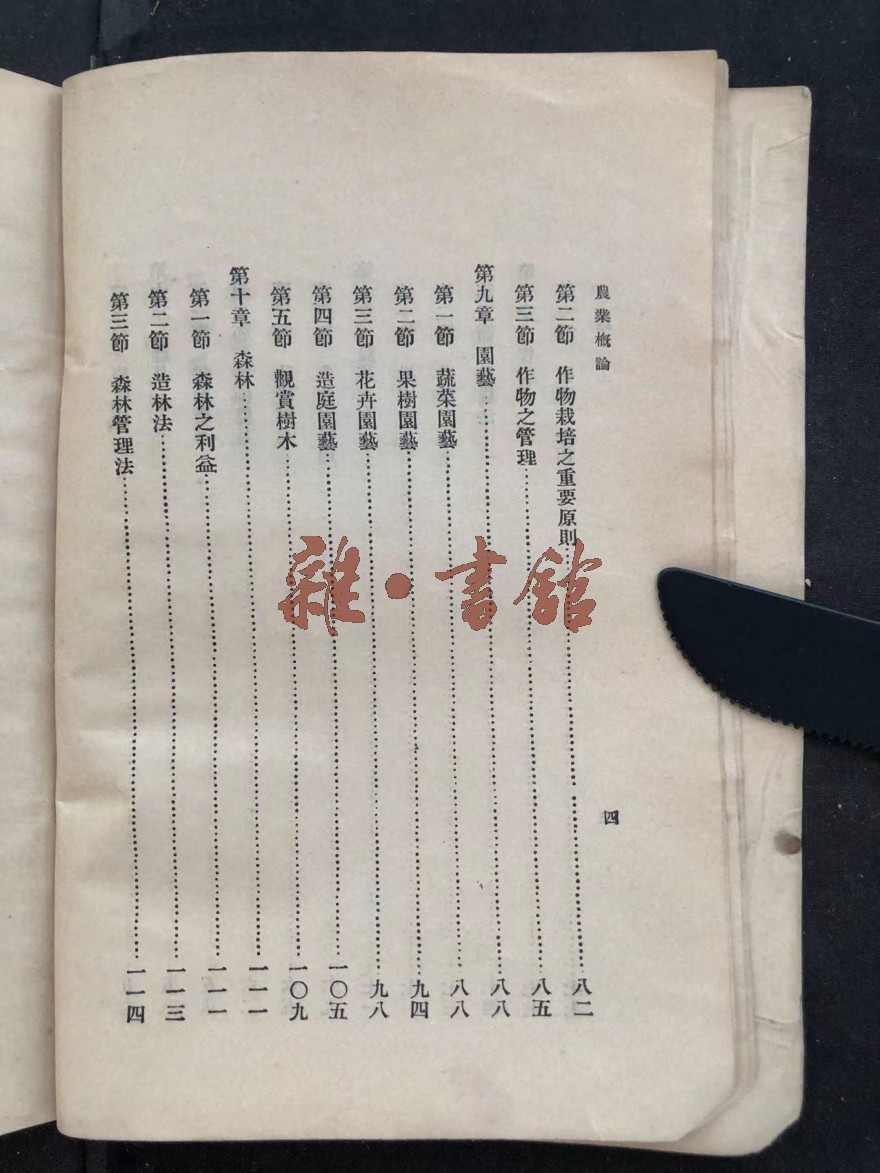 農業概論
四
第二節 作物栽培之重要原則⋯⋯八二
第三節 作物之管理⋯⋯八五
第九章 園藝⋯⋯八八
第一節 蔬菜園藝⋯⋯八八
第二節 果樹園藝⋯⋯九四
第三節 花卉園藝⋯⋯九八
第四節 造庭園藝⋯⋯一〇五
第五節 觀賞樹木⋯⋯一〇九
第十章 森林⋯⋯一一一
第一節 森林之利益⋯⋯一一一
第二節 造林法⋯⋯一一三
第三節 森林管理法⋯⋯一一四
雜·書館